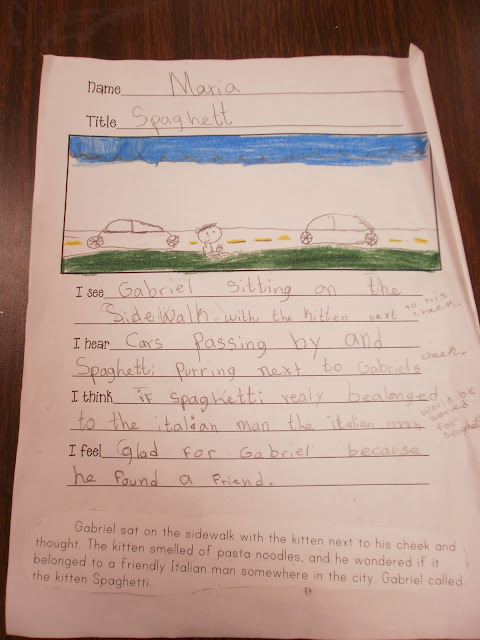 Name Maria
Title Spaghett
I see Gabriel sitting on the
Sidewalk with the kitten next to his cheek.
I hear Cars Passing by and
Spaghetti Purring next to Gabriels cheek.
I think if Spaghetti realy bealonged
to the italian man the italian man would be woried for Spaghetti
I feel Glad for Gabriel because
he found a friend.
Gabriel sat on the sidewalk with the kitten next to his cheek and
thought. The kitten smelled of pasta noodles, and he wondered if it
belonged to a friendly Italian man somewhere in the city. Gabriel called
the kitten Spaghetti.